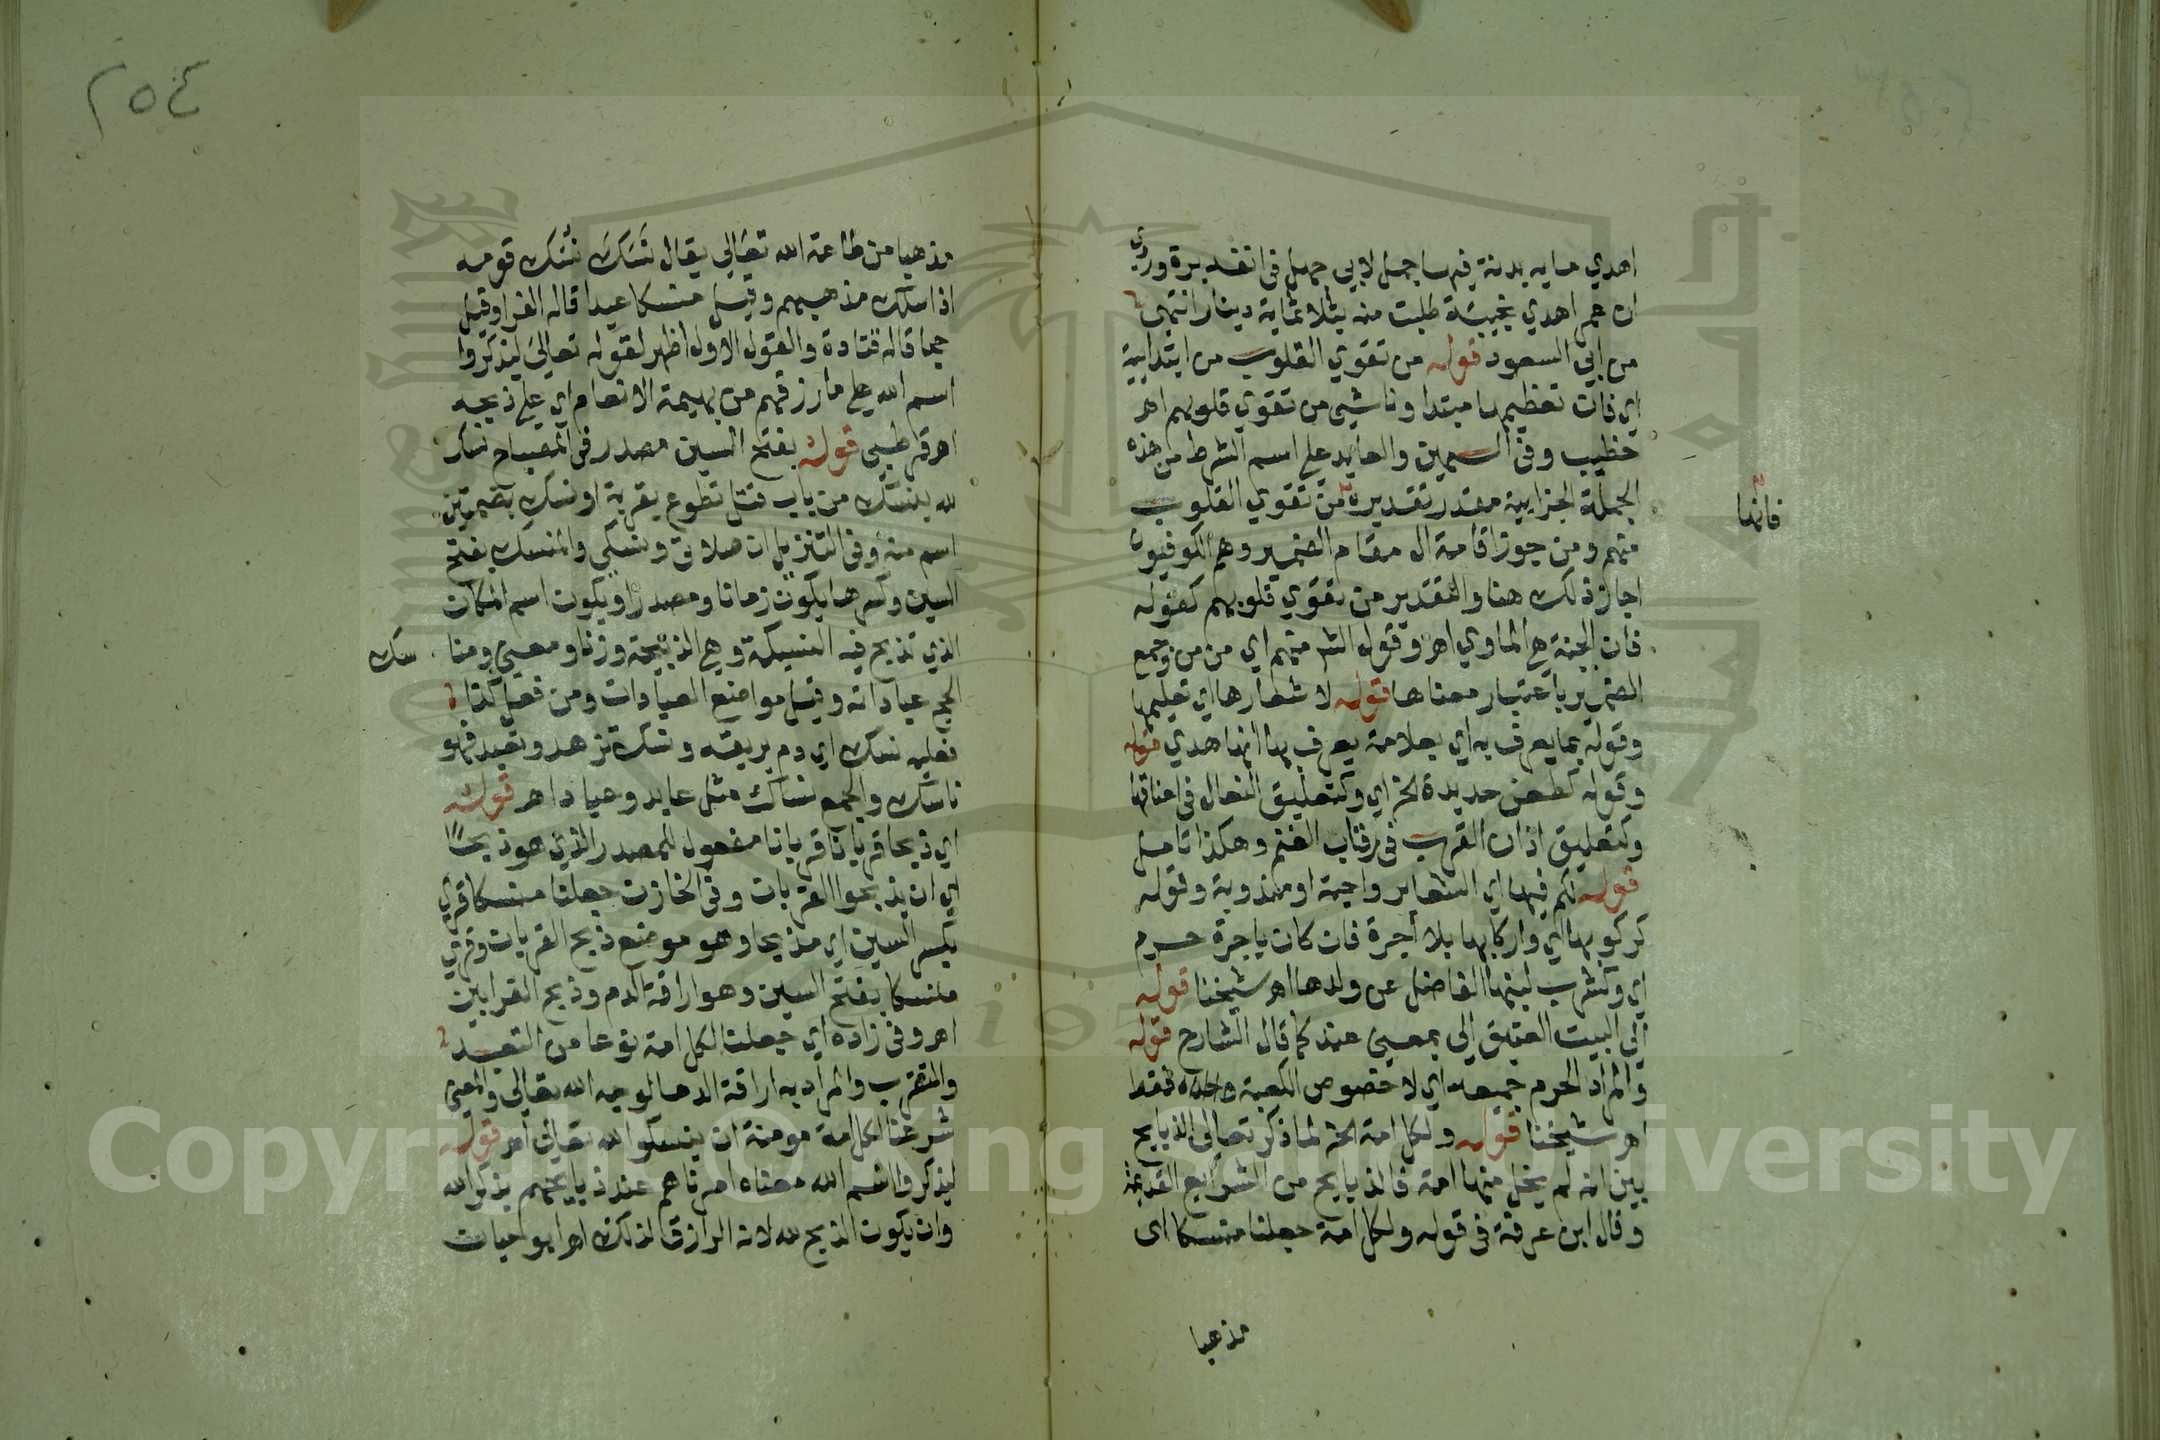 اهدي ماية بدنة فيها جمل لابي جهل في انفه برة وروي
ان عمر اهدي نجيبة طلبت منه بثلاثماية دينار انتهى
من ابي السعود قوله من تقوي القلوب من ابتدايية
اي فان تعظيمها مبتدا وناشي من تقوي قلوبهم اهـ
خطيب وفي السمين والعايد على اسم الشرط من هذه
الجملة الجزايية مقدر تقديره من تقوي القلوب
فانها
منهم ومن جوز اقامة ال مقام الضمير وهم الكوفيون
اجاز ذلك هنا والتقدير من تقوي قلوبهم كقوله
فان الجنة هي الماوي اهـ وقول الشر منهم اي من من وجمع
الضمير باعتبار معناها قوله لاشعارها اي تعليمها
وقوله بما يعرف به اي بعلامة يعرف بها انها هدي قوله
وقوله كطعن حديدة الخ اي وكتعليق النعال في اعناقها
وكتعليق اذان القرب في رقاب الغنم وهكذا تامل
قوله لكم فيها اي الشعاير واجبة او مندوبة وقوله
كركوبها اي واركابها بلا أجرة فان كان باجرة حرم
اي وكشرب لبنها الفاضل عن ولدها اهـ شيخنا قوله
الى البيت العتيق الى بمعنى عند كما قال الشارح قوله
والمراد الحرم جميعه اي لا خصوص الكعبة وحده فقط
اهـ شيخنا قوله ولكل امة الخ لما ذكر تعالى الذبايح
بين انه لم يخل منها امة فالذبايح من الشرايع القديمة
وقال ابن عرفة في قوله ولكل امة جعلنا منسكا اى
مذهبا
٢٥٤
مذهبا من طاعة الله تعالي يقال نَسَكَ نُسُك قومه
اذا سلك مذهبهم وقيل منسكا عيدا قاله الفرا وقيل
حجا قاله قتادة والقول الاول أظهر لقوله تعالى ليذكروا
اسم الله علي ما رزقهم من بهيمة الانعام اي على ذبحه
اهـ قرطبي قوله بفتح السين مصدر في المصباح نسك
لله ينسك من باب قتل تطوع بقربة او نسك بضمتين
اسم منه وفي التنزيل ان صلاتي ونسكي والمنسك بفتح
السين وكسرها يكون زمانا ومصدرا ويكون اسم المكان
الذي تذبح فيه النسيكة وهي الذبيحة وزنا ومعنى ومنا
سك
الحج عباداته وقيل مواضع العبادات ومن فعل كذا
فعليه نسك اي دم يريقه ونسك تزهد وتعبد فهو
ناسك والجمع نساك مثل عابد وعباد اهـ قوله
اي ذبحا قربانا قربانا مفعول للمصدر الذي هو ذبحًا
اي ان يذبحوا القربات وفي الخازن جعلنا منسكا قري
بكسر السين اي مذبحا وهو موضع ذبح القربات وقري
منسكا بفتح السين وهو اراقة الدم وذبح القرابين
اهـ وفي زاده اي جعلنا لكل امة نوعا من التعبد
والتقرب والمراد به اراقة الدما لوجه الله تعالي والمعنى
شرعنا لكل امة مومنة ان ينسكوا لله تعالى اهـ قوله
ليذكروا اسم الله معناه امرناهم عند ذبايحهم بذكر الله
وان يكون الذبح لله لانه الرازق لذلك اهـ ابو حيان